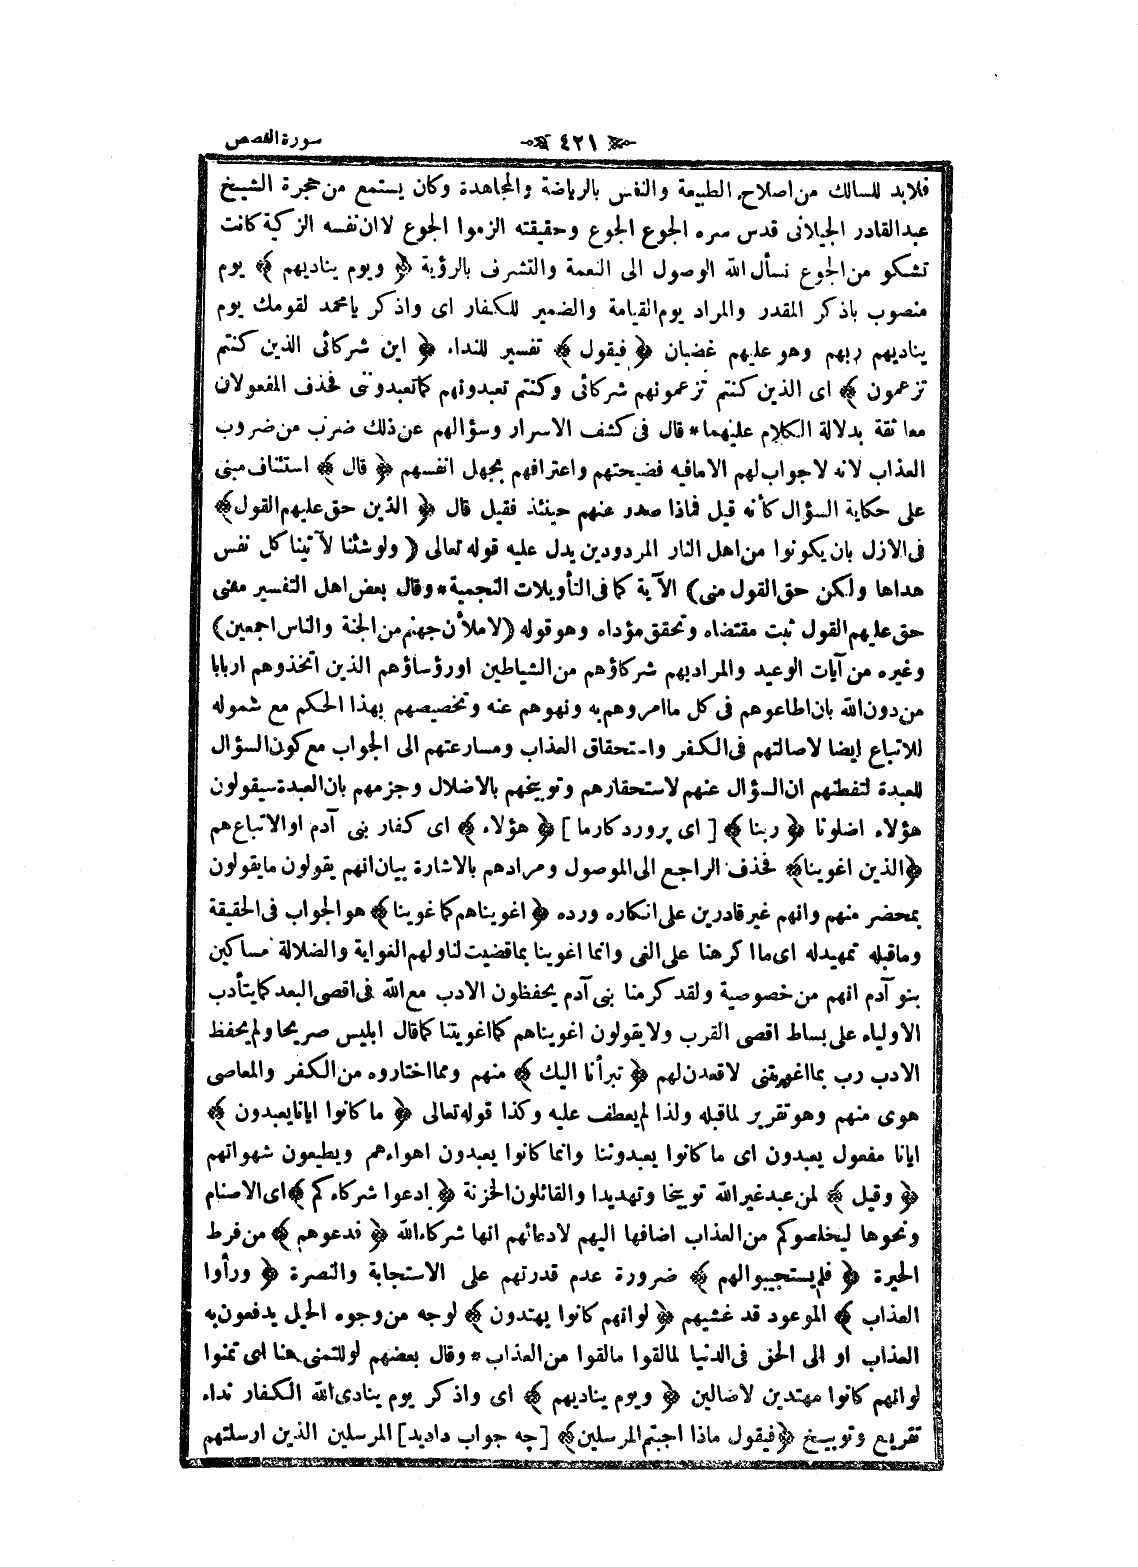 سورة القصص
٤٢١
فلابد للسالك من اصلاح الطبيعة والنفس بالرياضة والمجاهدة وكان يستمع من حجرة الشيخ
عبدالقادر الجيلانى قدس سره الجوع الجوع وحقيقته الزموا الجوع لا ان نفسه الزكية كانت
تشكو من الجوع نسأل الله الوصول الى النعمة والتشرف بالرؤية ﴿ ويوم يناديهم ﴾ يوم
منصوب باذكر المقدر والمراد يوم القيامة والضمير للكفار اى واذكر يا محمد لقومك يوم
يناديهم ربهم وهو عليهم غضبان ﴿ فيقول ﴾ تفسير للنداء ﴿ اين شركائى الذين كنتم
تزعمون ﴾ اى الذين كنتم تزعمونهم شركائى وكنتم تعبدونهم كما تعبدوننى فحذف المفعولان
معا ثقة بدلالة الكلام عليهما * قال فى كشف الاسرار وسؤالهم عن ذلك ضرب من ضروب
العذاب لانه لا جواب لهم الا ما فيه فضيحتهم واعترافهم بجهل انفسهم ﴿ قال ﴾ استئناف مبنى
على حكاية السؤال كأنه قيل فماذا صدر عنهم حينئذ فقيل قال ﴿ الذين حق عليهم القول ﴾
فى الازل بان يكونوا من اهل النار المردودين يدل عليه قوله تعالى ( ولو شئنا لآتينا كل نفس
هداها ولكن حق القول منى ) الآية كما فى التأويلات النجمية * وقال بعض اهل التفسير معنى
حق عليهم القول ثبت مقتضاه وتحقق مؤداه وهو قوله ( لاملأن جهنم من الجنة والناس اجمعين )
وغيره من آيات الوعيد والمراد بهم شركاؤهم من الشياطين او رؤساؤهم الذين اتخذوهم اربابا
من دون الله بان اطاعوهم فى كل ما امروهم به ونهوهم عنه وتخصيصهم بهذا الحكم مع شموله
للاتباع ايضا لاصالتهم فى الكفر واستحقاق العذاب ومسارعتهم الى الجواب مع كون السؤال
للعبدة لتفطنهم ان السؤال عنهم لاستحقارهم وتوبيخهم بالاضلال وجزمهم بان العبدة سيقولون
هؤلاء اضلونا ﴿ ربنا ﴾ [ اى پروردكار ما ] ﴿ هؤلاء ﴾ اى كفار بنى آدم او الاتباع هم
﴿ الذين اغوينا ﴾ فحذف الراجع الى الموصول ومرادهم بالاشارة بيان انهم يقولون ما يقولون
بمحضر منهم وانهم غير قادرين على انكاره ورده ﴿ اغويناهم كما غوينا ﴾ هو الجواب فى الحقيقة
وما قبله تمهيد له اى ما اكرهنا على الغى وانما اغوينا بما قضيت لنا ولهم الغواية والضلالة مساكين
بنو آدم انهم من خصوصية ولقد كرمنا بنى آدم يحفظون الادب مع الله فى اقصى البعد كما يتأدب
الاولياء على بساط اقصى القرب ولا يقولون اغويناهم كما اغويتنا كما قال ابليس صريحا ولم يحفظ
الادب رب بما اغويتنى لاقعدن لهم ﴿ تبرأنا اليك ﴾ منهم ومما اختاروه من الكفر والمعاصى
هوى منهم وهو تقرير لما قبله ولذا لم يعطف عليه وكذا قوله تعالى ﴿ ما كانوا ايانا يعبدون ﴾
ايانا مفعول يعبدون اى ما كانوا يعبدوننا وانما كانوا يعبدون اهواءهم ويطيعون شهواتهم
﴿ وقيل ﴾ لمن عبد غير الله توبيخا وتهديدا والقائلون الخزنة ﴿ ادعوا شركاءكم ﴾ اى الاصنام
ونحوها ليخلصوكم من العذاب اضافها اليهم لادعائهم انها شركاء الله ﴿ فدعوهم ﴾ من فرط
الحيرة ﴿ فلم يستجيبوا لهم ﴾ ضرورة عدم قدرتهم على الاستجابة والنصرة ﴿ ورأوا
العذاب ﴾ الموعود قد غشيهم ﴿ لو انهم كانوا يهتدون ﴾ لوجه من وجوه الحيل يدفعون به
العذاب او الى الحق فى الدنيا لما لقوا ما لقوا من العذاب * وقال بعضهم لو للتمنى هنا اى تمنوا
لو انهم كانوا مهتدين لا ضالين ﴿ ويوم يناديهم ﴾ اى واذكر يوم ينادى الله الكفار نداء
تقريع وتوبيخ ﴿ فيقول ماذا اجبتم المرسلين ﴾ [ چه جواب داديد ] المرسلين الذين ارسلتهم